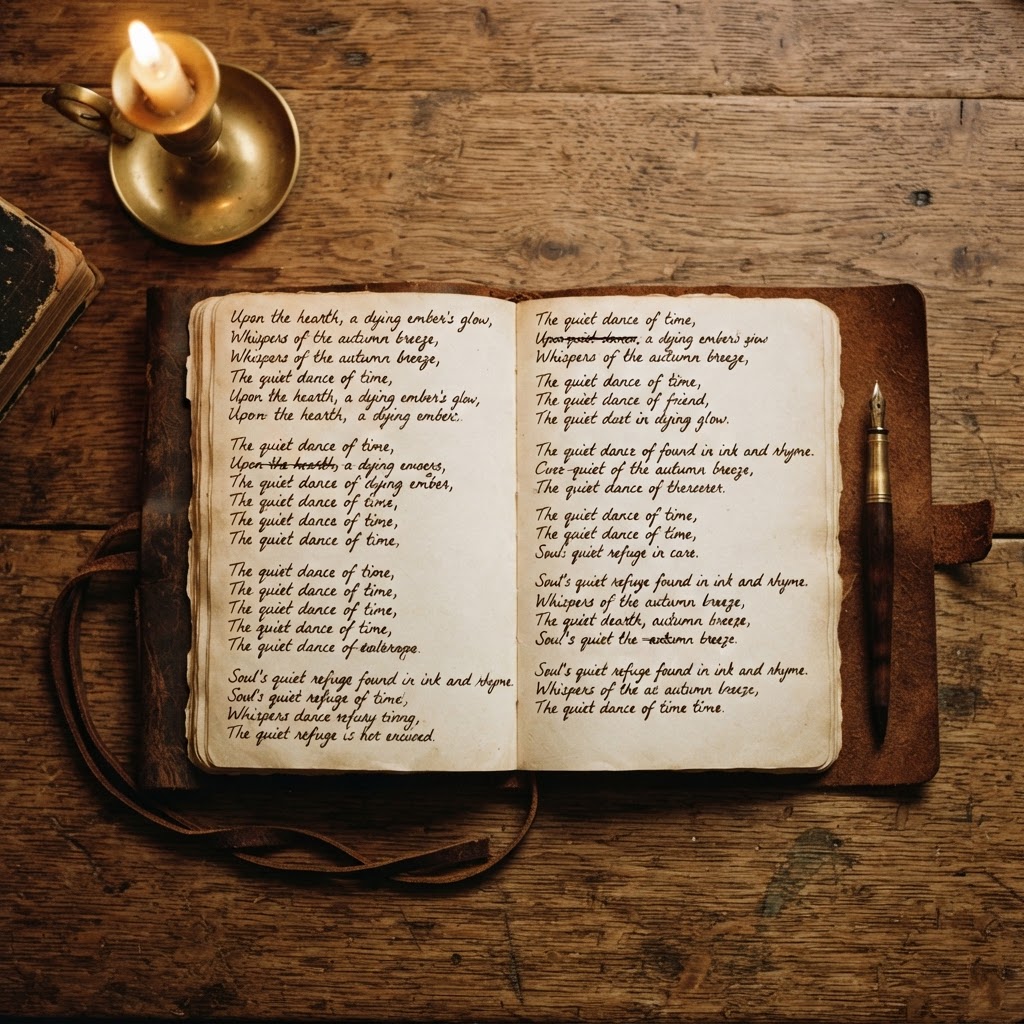 Upon the hearth, a dying ember's glow,
Whispers of the autumn breeze,
Whispers of the autumn breeze,
The quiet dance of time,
Upon the hearth, a dying ember's glow,
Upon the hearth, a dying ember.
The quiet dance of time,
Upon the hearth, a dying
The quiet dance of dying ember,
The quiet dance of time,
The quiet dance of time,
The quiet dance of time,
The quiet dance of time,
The quiet dance of time,
The quiet dance of time,
The quiet dance of time,
The quiet dance of
Soul's quiet refuge found in ink and rhyme.
Soul's quiet refuge of time,
Whispers dance
The quiet refuge is
The quiet dance of time,
a dying ember's
Whispers of the autumn breeze,
The quiet dance of time,
The quiet dance of friend,
The quiet dust in dying glow.
The quiet dance of found in ink and rhyme.
quiet of the autumn breeze,
The quiet dance of
The quiet dance of time,
The quiet dance of time,
Soul: quiet refuge in care.
Soul's quiet refuge found in ink and rhyme.
Whispers of the autumn breeze,
The quiet dearth, autumn breeze,
Soul's quiet the autumn breeze.
Soul's quiet refuge found in ink and rhyme.
Whispers of the at autumn breeze,
The quiet dance of time time.